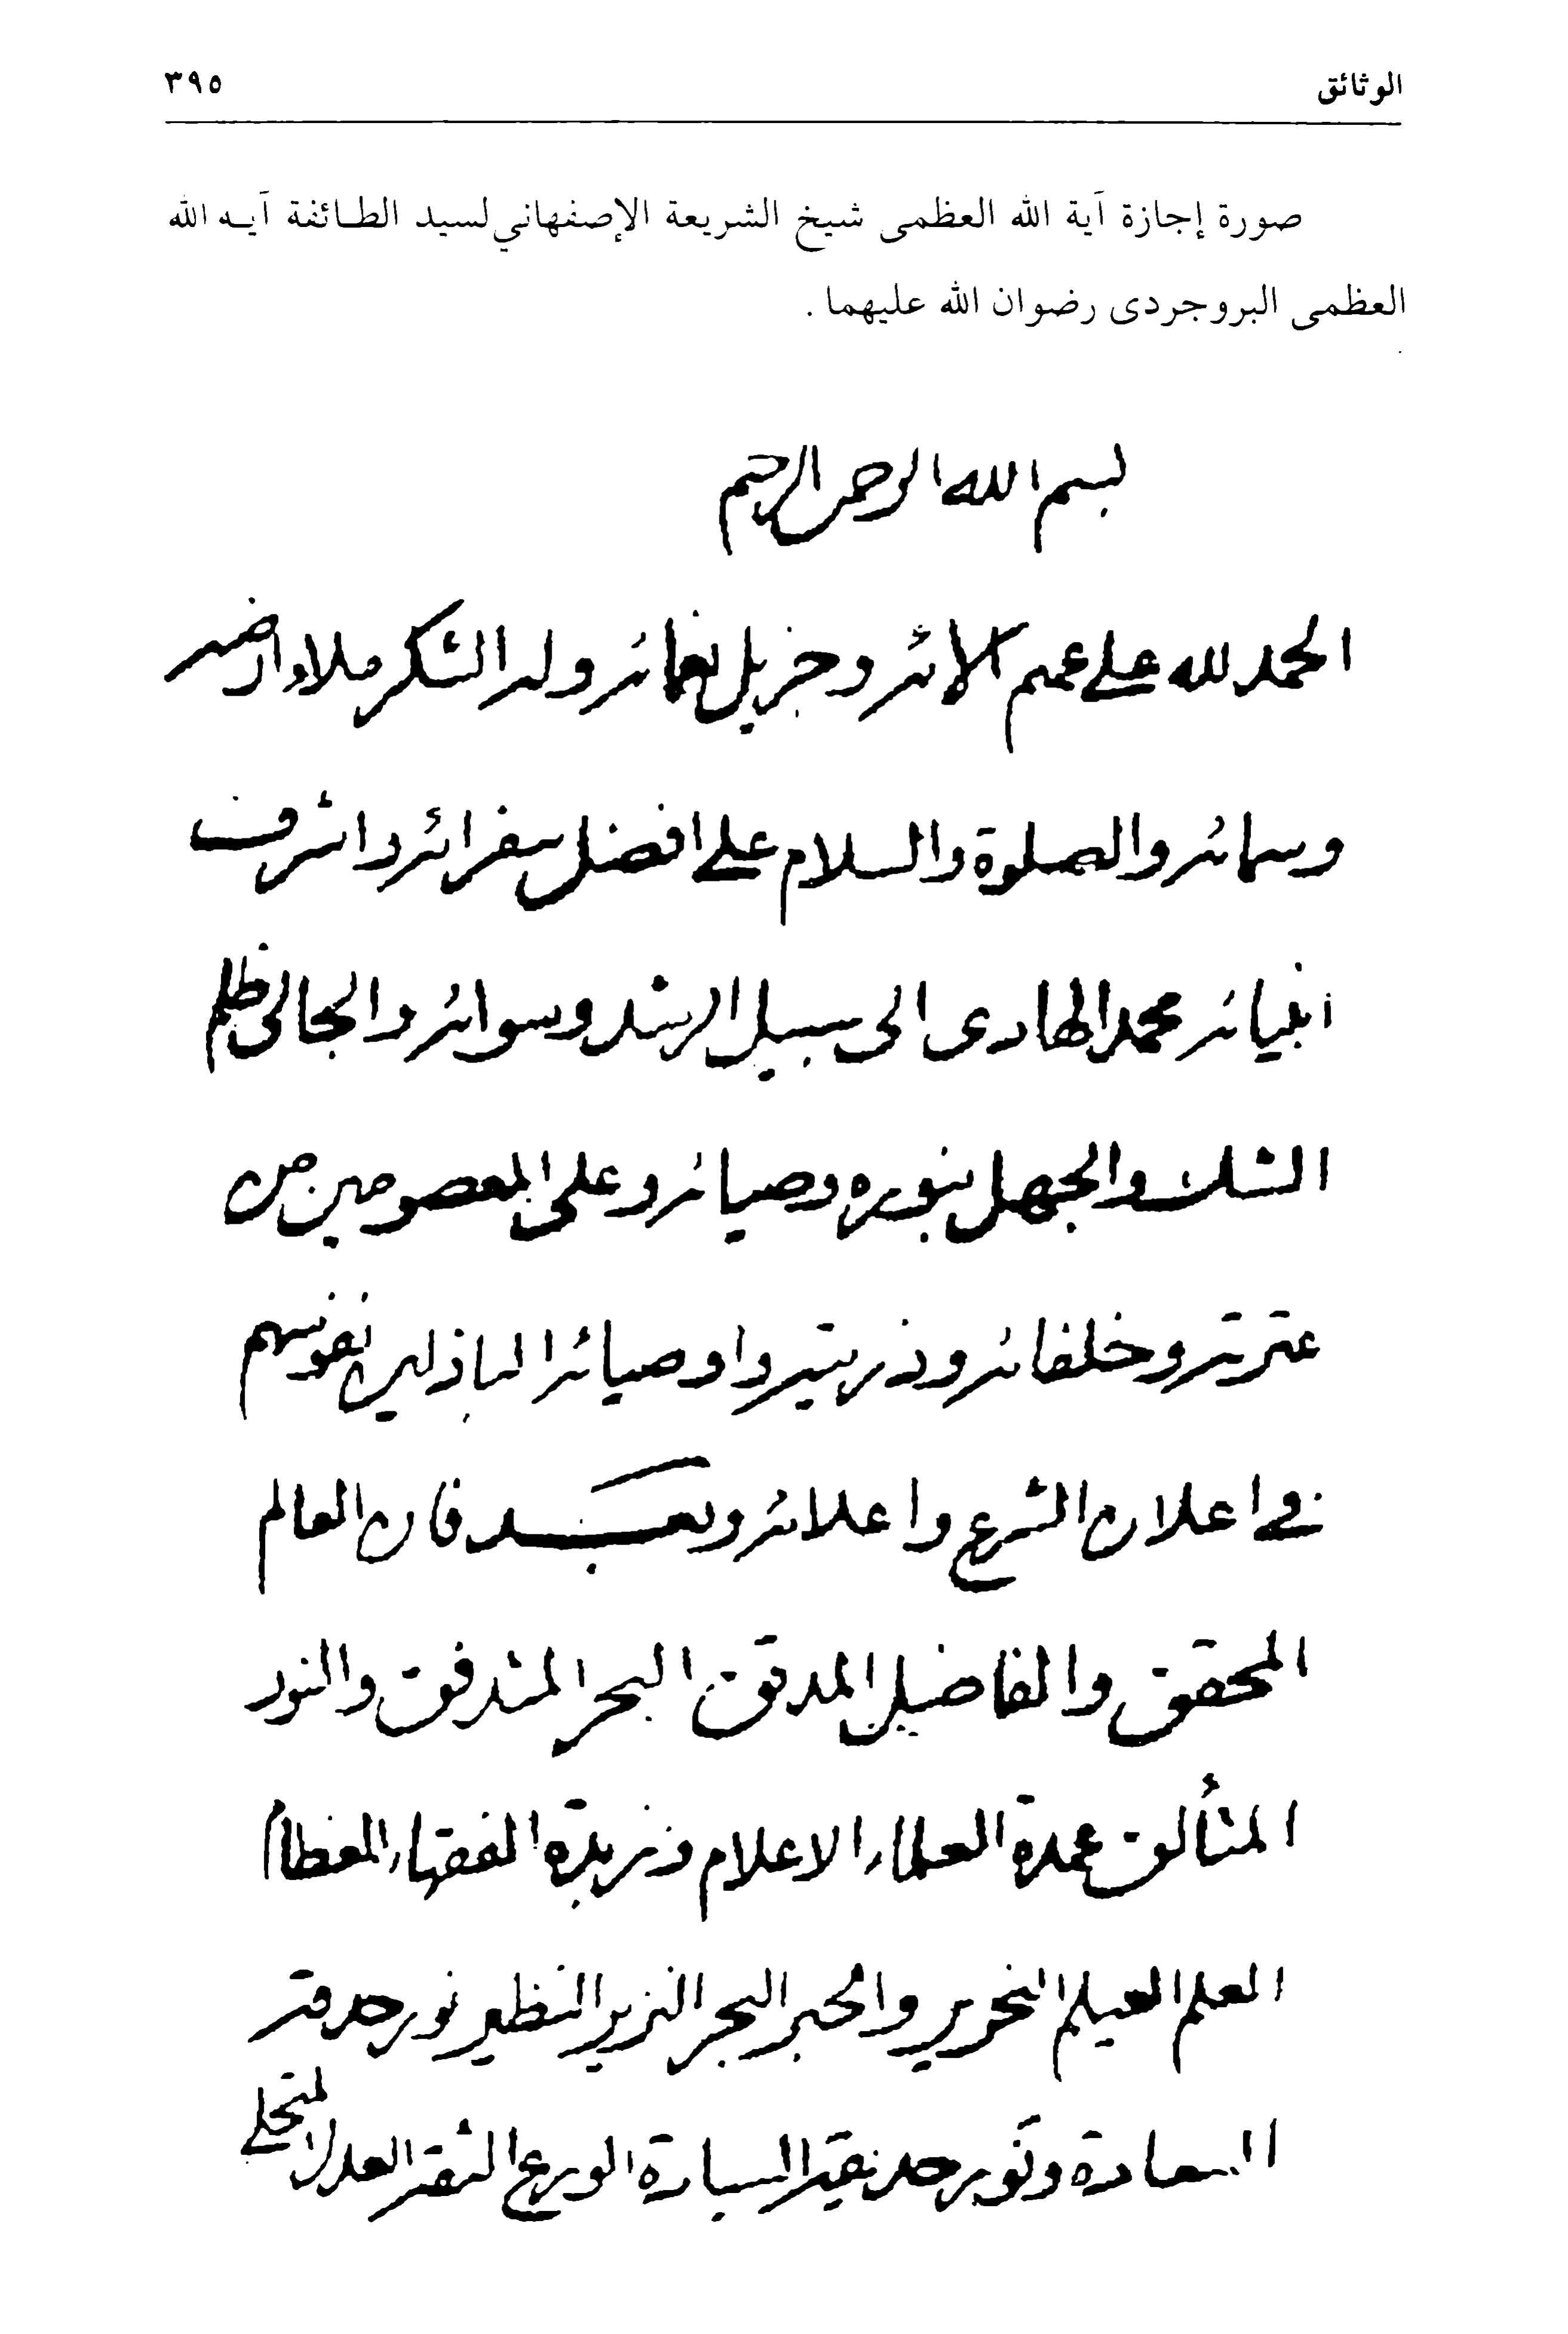 الوثائق ٣٩٥
صورة إجازة آية الله العظمى شيخ الشريعة الإصفهاني لسيد الطائفة آيـه الله
العظمى البروجردى رضوان الله عليهما .
بسم الله الرحمن الرحيم
الحمد لله على عميم آلائه وجزيل نعمائه وله الشكر ملاء ارضه
وسمائه والصلوة والسلام على افضل سفرائه واشرف
انبيائه محمد الهادى الى سبيل الرشد وسوائه والجالى ظلم
الشك والجهل بنوره وضيائه وعلى المعصومين من
عترته وخلفائه وذريته واوصيائه الباذلين نفوسهم
في اعلان الشرع واعلائه وبعد فان العالم
المحقق والفاضل المدقق البحر المتدفق والنور
المتألق عمدة العلماء الاعلام وزبدة الفقهاء العظام
العلم العيلم النحرير والحبر البحر النظير نور حدقة
السعادة ونور حديقة السيادة الورع الثقة العدل المتحلي